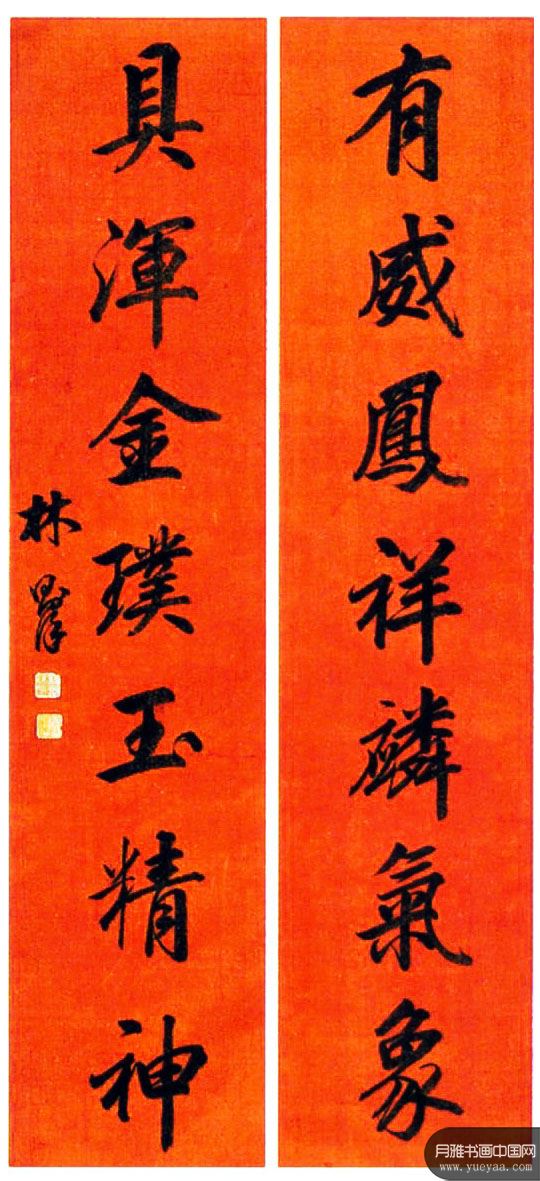 有威鳳祥麟氣象
具渾金璞玉精神
林
月雅书画中国网
www.yueyaa.com